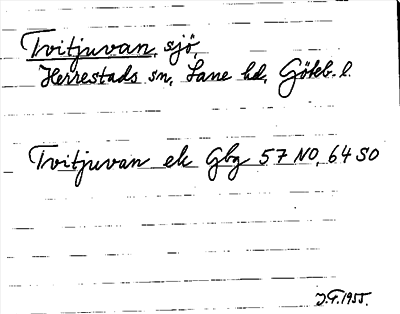 Tvitjuvan, sjö,
Herrestads sn, Lane hd, Göteb. l.
Tvitjuvan ek Gbg 57 NO, 64 SO
J.F. 1955.